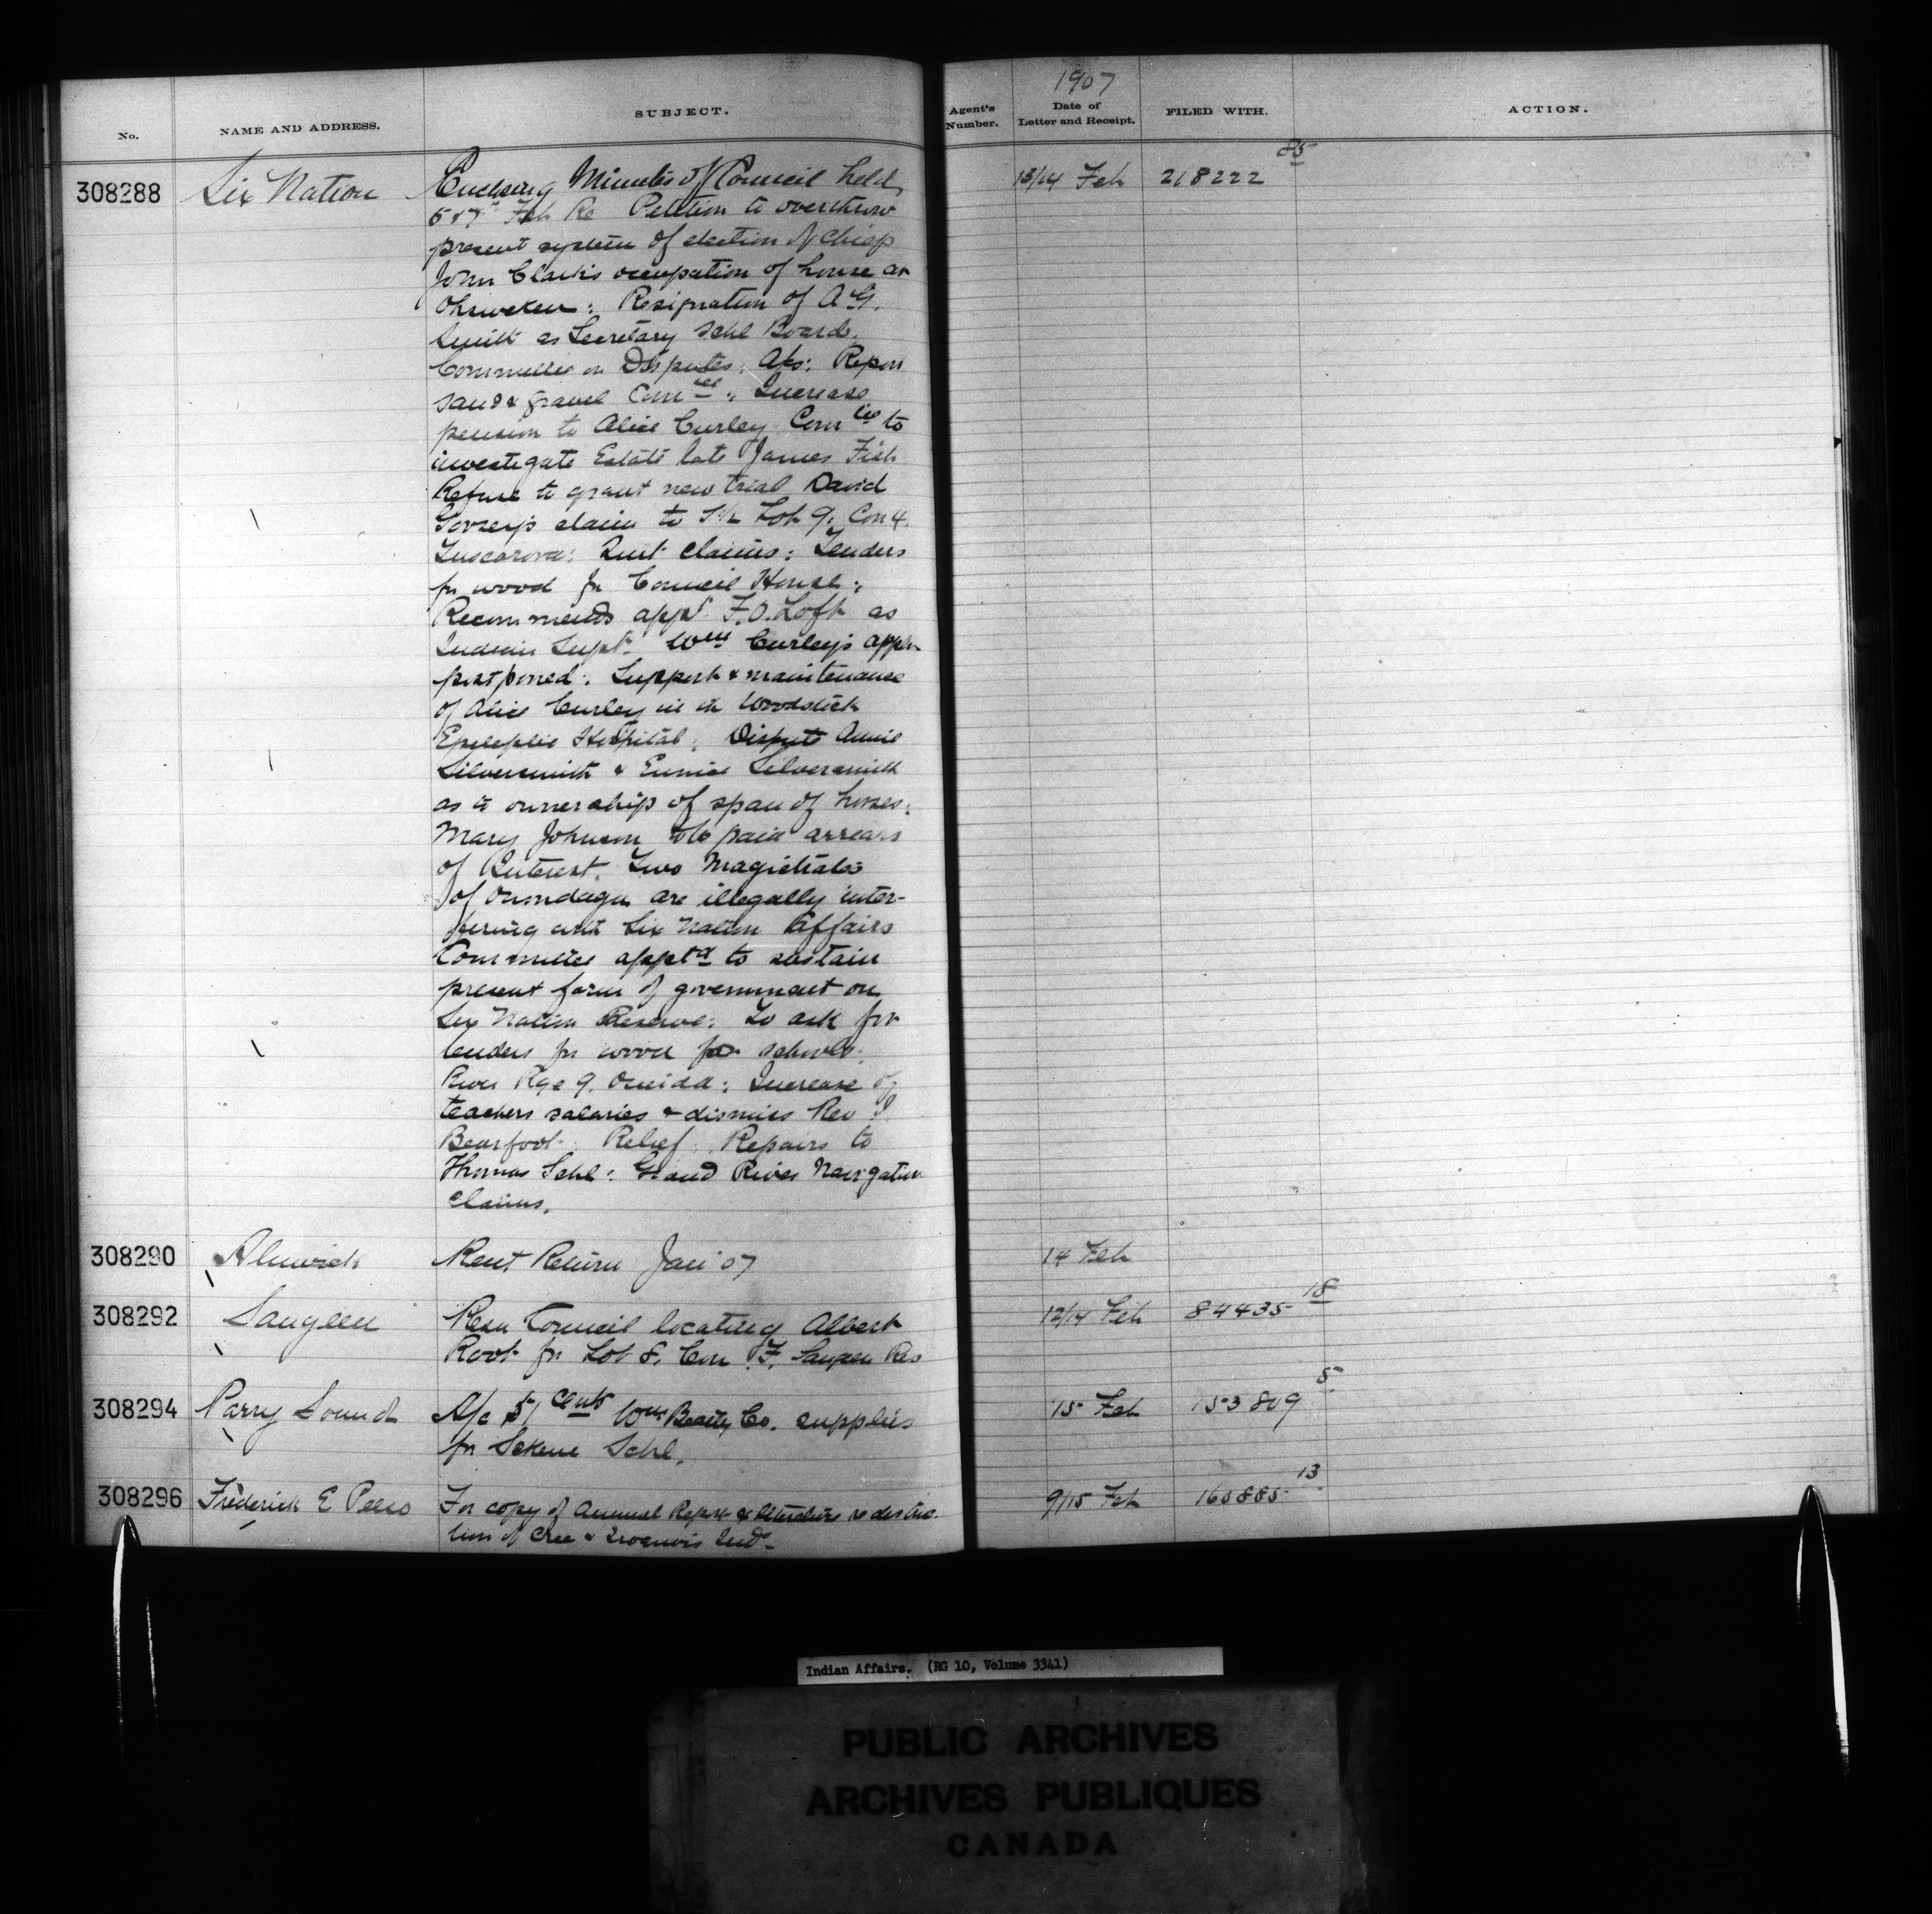 No.
NAME AND ADDRESS.
SUBJECT.
Agent's Number.
1907
Date of Letter and Receipt.
FILED WITH.
ACTION.
308288
Six Nation
Enclosing Minutes of Council held
5 & 7th Feb Re Petition to overthrow
present system of election of Chiefs
John Clark's occupation of house at
Ohsweken: Resignation of A G.
Smith as Secretary Schl Board.
Committee on Disputes: A/cs: Report
Sand & gravel Comtee: Increase
pension to Alice Curley Comtee to
investigate Estate late James Fish
Refuse to grant new trial David
claim to Lot 9. Con 4.
Tuscarora: Quit Claims: Tenders
for wood for Council House:
Recommends appt F.O. Loft as
Indian Supt. Wm Curley's appln
postponed: Support & maintenance
of Alice Curley in Woodstock
Epileptic Hospital: Dispute Annie
Silversmith & Eunice Silversmith
as to ownership of span of horses:
Mary Johnson to be paid arrears
of Interest. Two Magistrates
of Onondaga are illegally inter-
fering with Six Nation Affairs
Committee apptd to sustain
present form of government on
Six Nation Reserve: To ask for
tenders for wood for schools:
River Rge 9. Oneida: Increase of
teachers salaries & dismiss Rev I
Bearfoot: Relief: Repairs to
Thomas Schl: Grand River Navigation
Claims.
13/14 Feb
218222
85
308290
Alnwick
Rent Return Jan '07
14 Feb
308292
Saugeen
Resn Council locating Albert
Root for Lot 8. Con F. Saugeen Res
12/14 Feb
84435
18
308294
Parry Sound
A/c 51 cents Wm Beatty Co. supplies
for Schl.
15 Feb
153809
5
308296
Frederick E
For copy of Annual Report & literature re destruc-
tion of Cree & Iroquois Inds
9/15 Feb
160885
13
Indian Affairs. (RG 10, Volume 3341)
PUBLIC ARCHIVES
ARCHIVES PUBLIQUES
CANADA